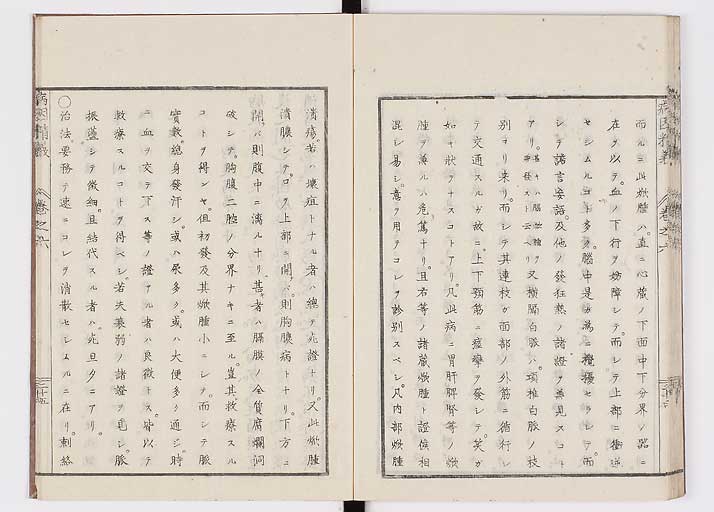 而ルニ此焮腫ハ直ニ心蔵ノ下面中下分界ノ器ニ
在ルヲ以テ血ノ下行ヲ妨障シテ而シテ上部ニ衝逆
セシムルコト多ク腦中是カ為ニ攪擾セラレテ而
シテ譫言妄語及他ノ發狂熱ノ諸證ヲ兼見スコト
アリ又横膈白脈ハ項椎白脈ノ枝
別ヨリ来リ而シテ其連枝ガ面部ノ外筋ニ循行シ
テ交通スルガ故ニ上下頸筋ニ痙攣ヲ發シテ笑ガ
如キ状ヲナスコトアリ凡此病ニ胃肝脾腎等ノ焮
腫ヲ兼ルハ危篤ナリ且右等ノ諸蔵焮腫ト證候相
混シ易シ意ヲ用テコレヲ診別スベシ凡内部焮腫
潰瘍若ハ壊疽トナル者ハ總テ死證ナリ又此焮腫
潰膿シテ口ヲ上部ニ開バ則胸膿病トナリ下方ニ
開バ則腹中ニ漓ルナリ甚者ハ膈膜ノ全質腐爛洞
破シテ胸腹二腔ノ分界ナキニ至ル豈其救療スル
コトヲ得ンヤ但初發及其焮腫小ニシテ而シテ脈
實數總身發汗シ或ハ尿多ク或ハ大便多ク通シ時
ニ血ヲ交テ下ス等ノ證アル者ハ良徴トス皆以テ
救療スルコトヲ得ベシ若夫衰弱ノ諸證ヲ見シ脈
振盪シテ微細且結代スル者ハ死旦夕ニアリ
〇治法要務テ速ニコレヲ消散セシムルニ在リ刺絡
病因精義 卷之六